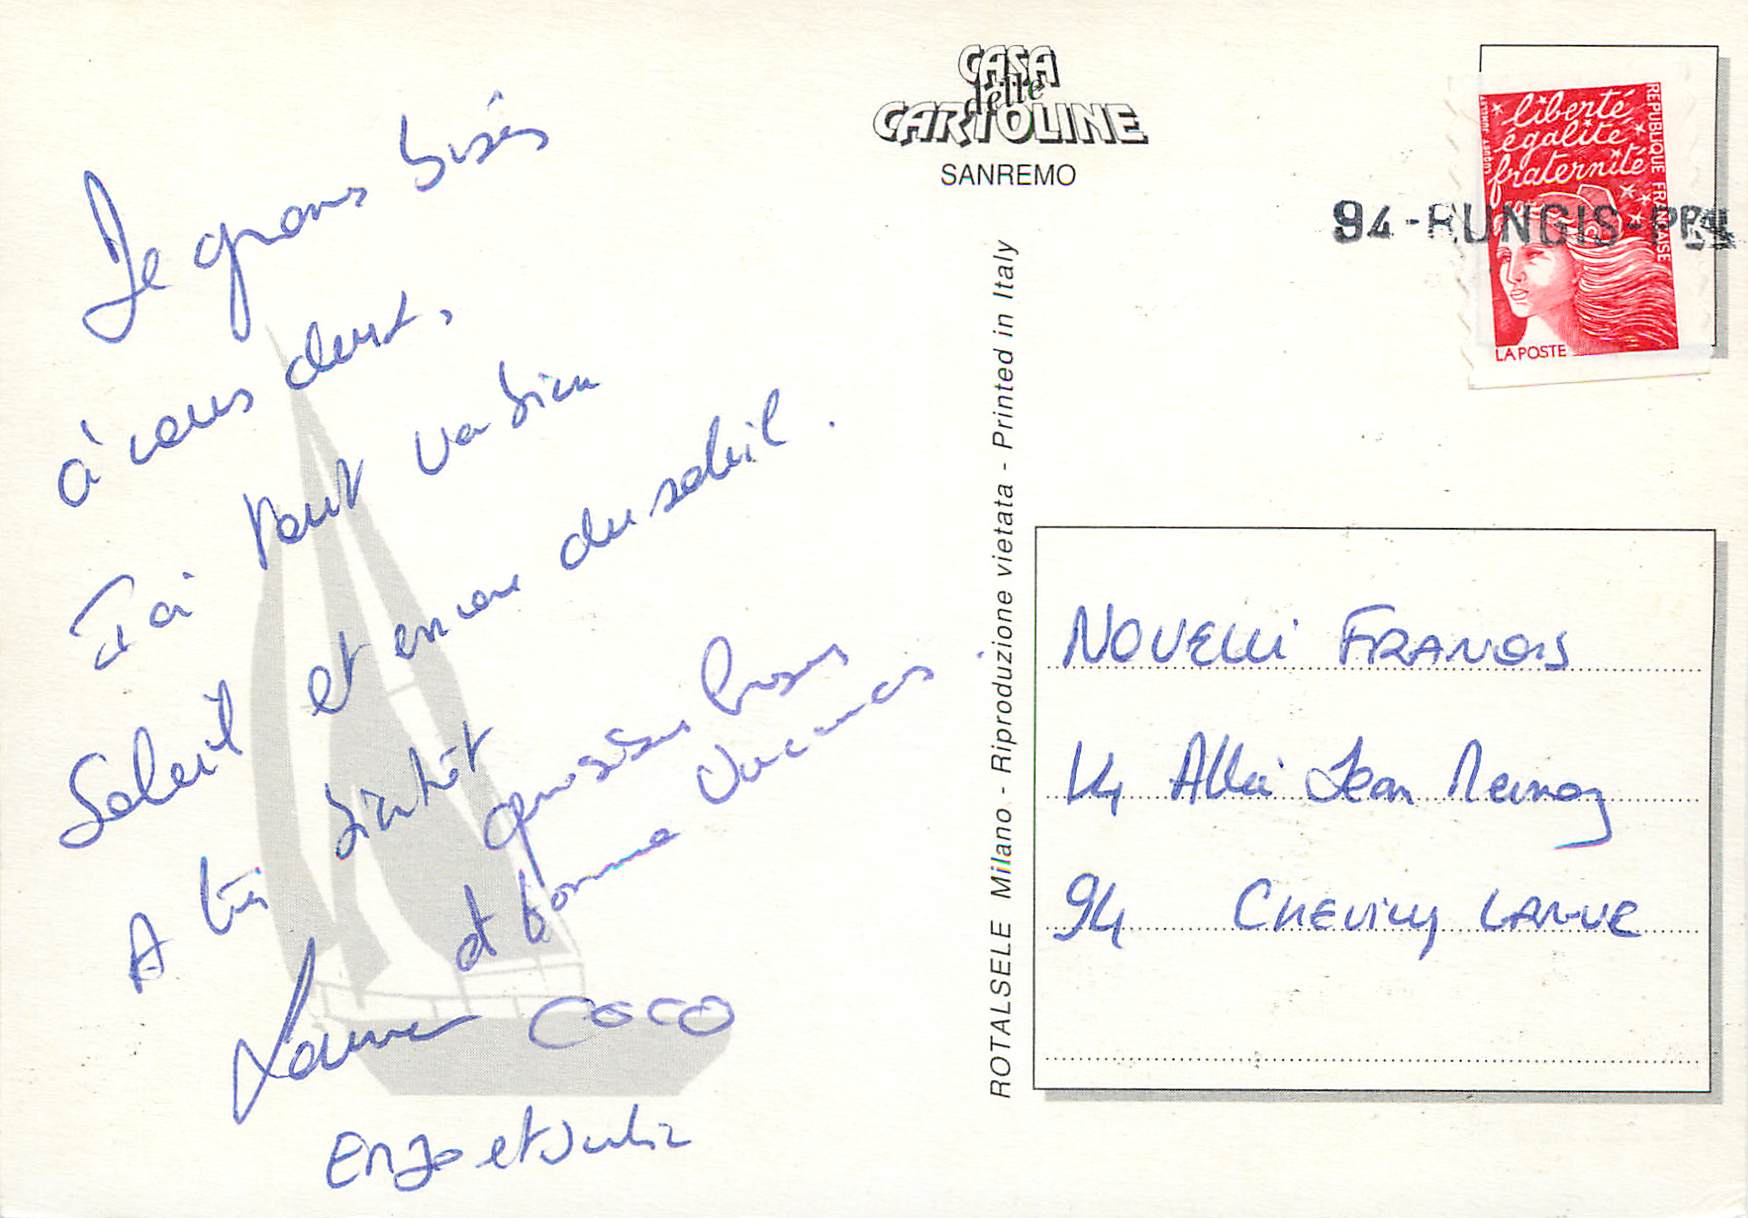 CASA
delle
CARTOLINE
SANREMO
liberté
égalité
fraternité
REPUBLIQUE FRANÇAISE
LA POSTE
94-RUNGIS-PPAL
ROTALSELE Milano. - Riproduzione vietata - Printed in Italy
De gros bisés
à vous deux,
Ici tout va bien
Soleil et encore du soleil.
A très bientôt
gros bisous
et bonne vacances.
COCO
Enzo et Julie
NOVELLI FRANCIS
14 Allée Jean
94 CHEVILLY LARUE